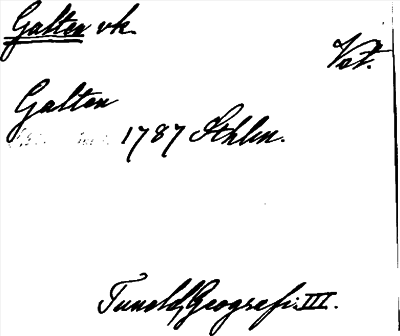 Galten vk.
Vat.
Galten
1787 Sthlm.
Tuneld, Geografi. III.